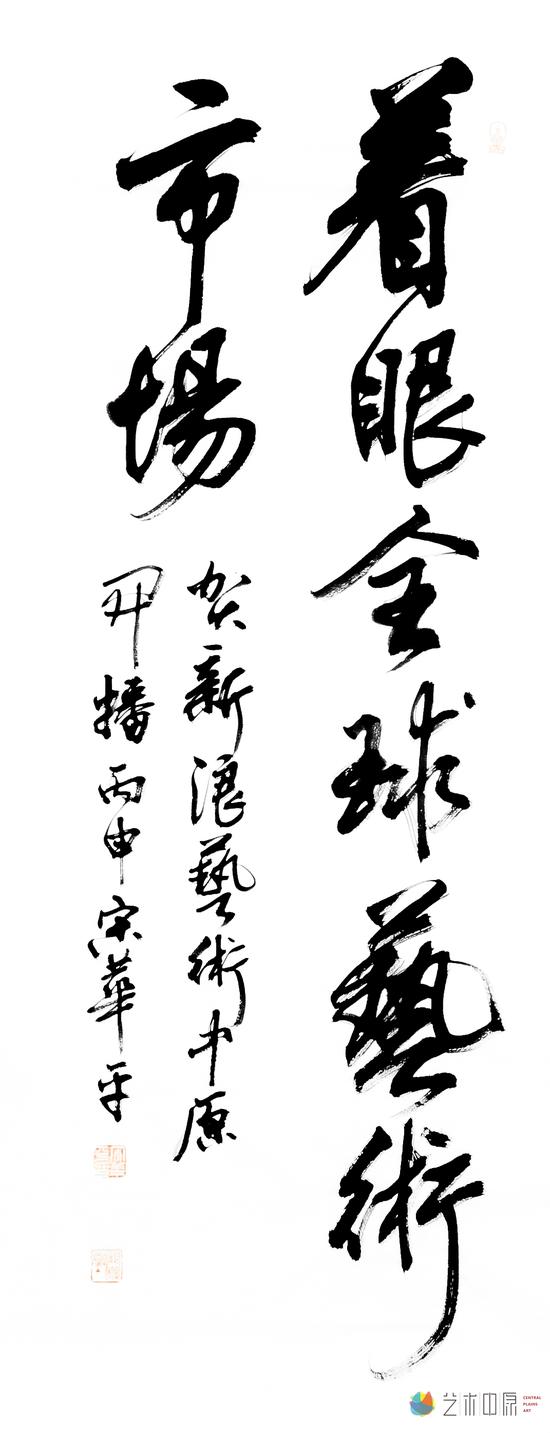 着眼全球藝術
市場
贺新浪藝術中原
开播丙申宋華平
艺术中原
CENTRAL
PLAINS
ART